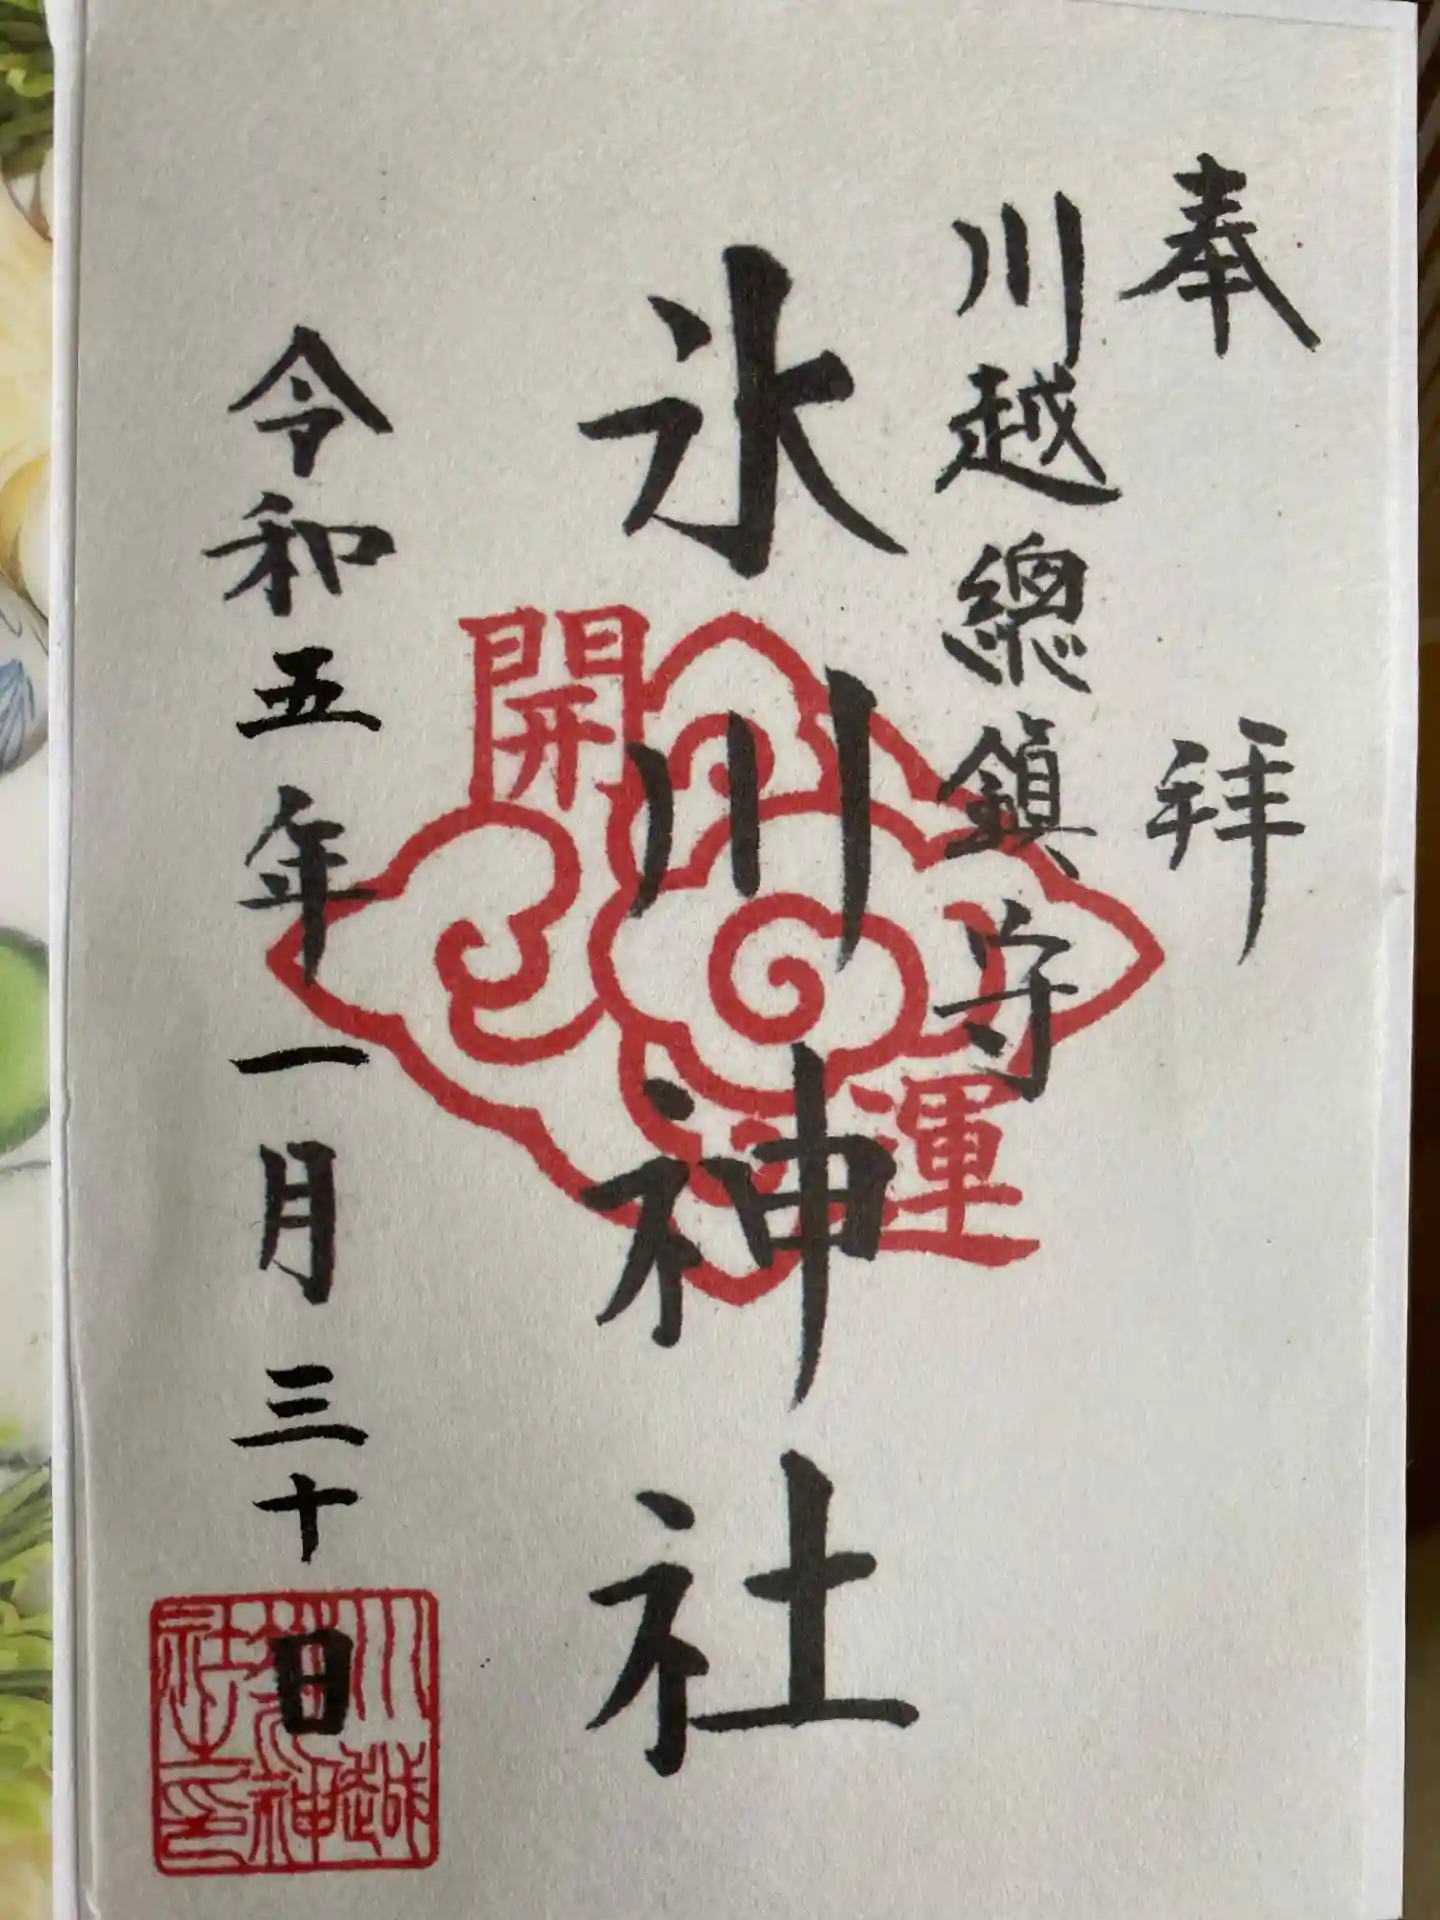 奉拜
川越總鎮守
氷川神社
開運
令和五年一月三十日
川越氷川神社之印